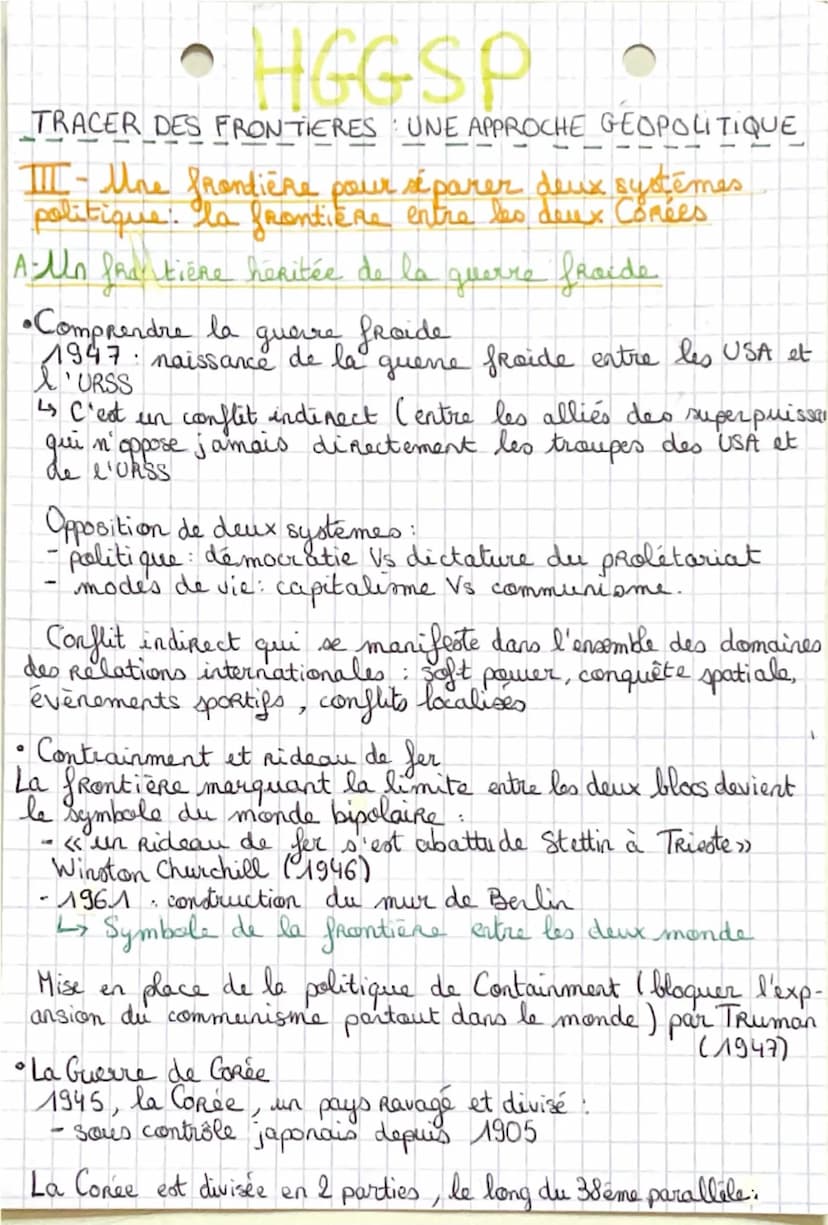 HGGSP
TRACER DES FRONTIERES : UNE APPROCHE GÉOPOLITIQUE
III - Une frontière pour séparer deux systèmes
politique : la frontière entre les deux Corées
A - Un frontière héritée de la guerre froide
• Comprendre la guerre froide
1947 : naissance de la guerre froide entre les USA et
l'URSS
↳ C'est un conflit indirect (entre les alliés des superpuissan
qui n'oppose jamais directement les troupes des USA et
de l'URSS
Opposition de deux systèmes :
- politique : démocratie Vs dictature du prolétariat
- modes de vie : capitalisme Vs communisme.
Conflit indirect qui se manifeste dans l'ensemble des domaines
des relations internationales : soft power, conquête spatiale,
évènements sportifs, conflits localisés
• Contrainment et rideau de fer
La frontière marquant la limite entre les deux blocs devient
le symbole du monde bipolaire :
- « un rideau de fer s'est abattu de Stettin à Trieste »
Winston Churchill (1946)
- 1961 : construction du mur de Berlin
↳ Symbole de la frontière entre les deux monde
Mise en place de la politique de Containment (bloquer l'exp-
ansion du communisme partout dans le monde) par Truman
(1947)
• La Guerre de Corée
1945, la Corée, un pays ravagé et divisé :
- sous contrôle japonais depuis 1905
La Corée est divisée en 2 parties, le long du 38ème parallèle :